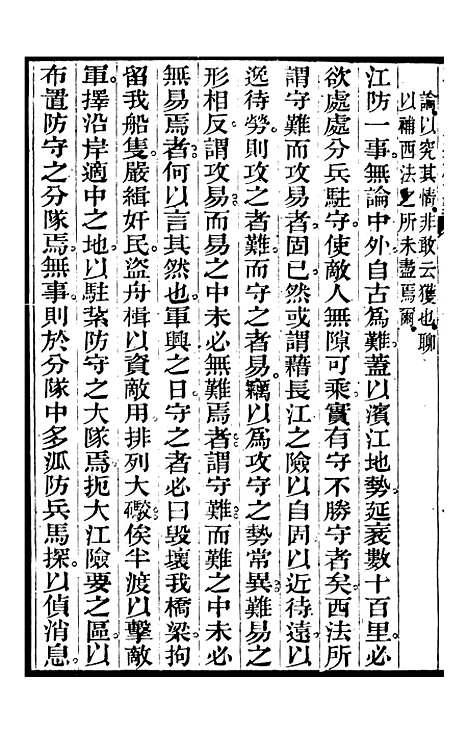 論以究其情非敢云獲也聊
以補西法之所未盡焉爾
江防一事無論中外自古為難蓋以濱江地勢延袤數十百里必
欲處處分兵駐守使敵人無隙可乘實有守不勝守者矣西法所
謂守難而攻易者固已然或謂藉長江之險以自固以近待遠以
逸待勞則攻之者難而守之者易竊以為攻守之勢常異難易之
形相反謂攻易而易之中未必無難焉者謂守難而難之中未必
無易焉者何以言其然也軍興之日守之者必曰毀壞我橋梁拘
留我船隻嚴緝奸民盜舟楫以資敵用排列大礮俟半渡以擊敵
軍擇沿岸適中之地以駐紮防守之大隊焉扼大江險要之區以
布置防守之分隊焉無事則於分隊中多派防兵馬探以偵消息